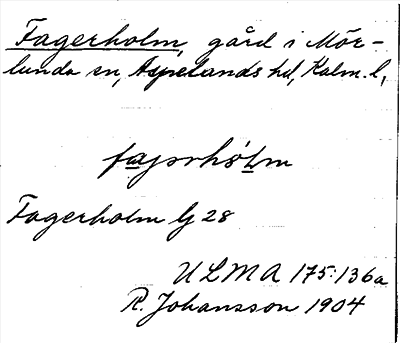 Fagerholm, gård i Mör-
lunda sn, Aspelands hd, Kalm. l,
Fagerholm Gj 28
ULMA 175:136a
R. Johansson 1904